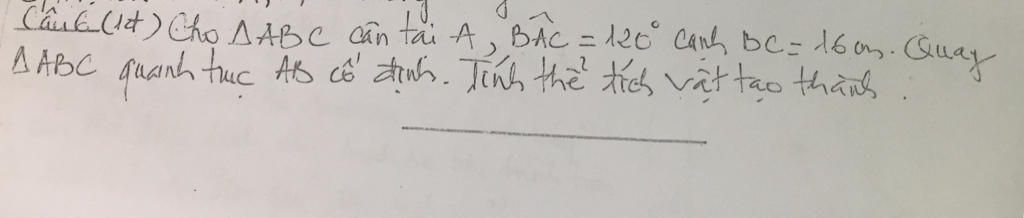 Câu 6 (1đ) Cho ΔABC cân tại A, BÂC = 120° cạnh BC = 16 cm. Quay
ΔABC quanh trục AB cố định. Tính thể tích vật tạo thành.